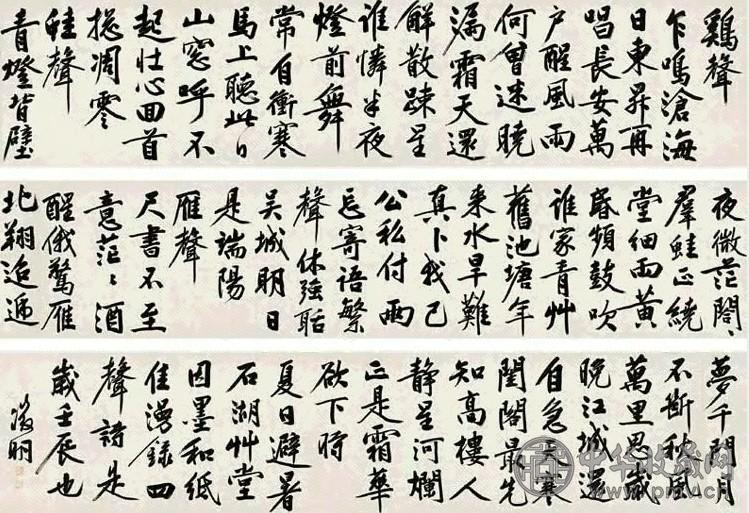 雞聲
乍鳴滄海
日東昇再
唱長安萬
户醒風雨
何曾迷曉
漏霜天還
解散踈星
誰憐半夜
燈前舞
常自衝寒
馬上聽此日
山窓呼不
起壯心回首
揔凋零
蛙聲
青燈背壁
夜微茫閣〻
羣蛙正繞
堂細雨黄
昏頻鼓吹
誰家青艸
舊池塘年
来水旱難
真卜我已
公私付兩
忘寄語繁
聲休強聒
吴城明日
是端陽
雁聲
尺書不至
意茫〻酒
醒俄驚雁
北翔迢遞
夢千閒月
不斷秋風
萬里思歲
晚江城還
自急天寒
閨閣最先
知高樓人
静星河爛
正是霜華
欲下時
夏日避暑
石湖艸堂
因墨和紙
佳漫録四
聲詩是
歲壬辰也
徵明
中华收藏网